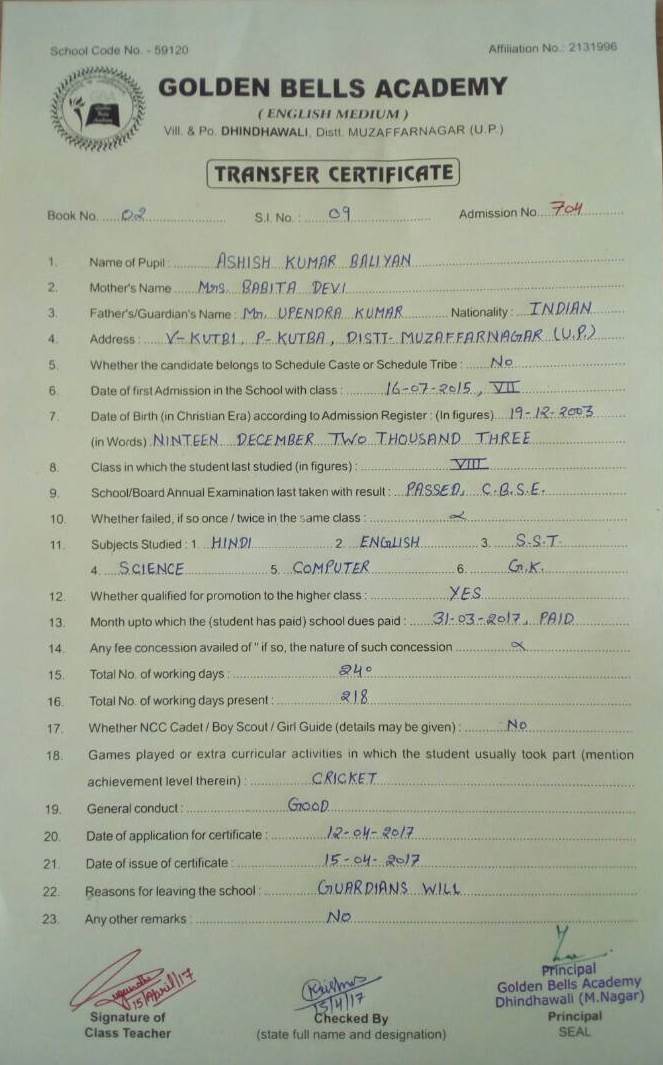 School Code No. - 59120 Affiliation No.: 2131996
GOLDEN BELLS ACADEMY
( ENGLISH MEDIUM )
Vill. & Po. DHINDHAWALI, Distt. MUZAFFARNAGAR (U.P.)
TRANSFER CERTIFICATE
Book No. 02 S.I. No. : 09 Admission No. 704
1. Name of Pupil : ASHISH KUMAR BALIYAN
2. Mother's Name Mrs. BABITA DEVI
3. Father's/Guardian's Name : Mr. UPENDRA KUMAR Nationality : INDIAN
4. Address : V- KUTBI, P- KUTBA, DISTT- MUZAFFARNAGAR (U.P.)
5. Whether the candidate belongs to Schedule Caste or Schedule Tribe : No
6. Date of first Admission in the School with class : 16-07-2015, VII
7. Date of Birth (in Christian Era) according to Admission Register : (In figures) 19-12-2003
(in Words) NINTEEN DECEMBER TWO THOUSAND THREE
8. Class in which the student last studied (in figures) : VIII
9. School/Board Annual Examination last taken with result : PASSED, C.B.S.E.
10. Whether failed, if so once / twice in the same class :
11. Subjects Studied : 1. HINDI 2. ENGLISH 3. S.S.T.
4. SCIENCE 5. COMPUTER 6. G.K.
12. Whether qualified for promotion to the higher class : YES
13. Month upto which the (student has paid) school dues paid : 31-03-2017, PAID
14. Any fee concession availed of " if so, the nature of such concession
15. Total No. of working days : 240
16. Total No. of working days present : 218
17. Whether NCC Cadet / Boy Scout / Girl Guide (details may be given) : No
18. Games played or extra curricular activities in which the student usually took part (mention
achievement level therein) : CRICKET
19. General conduct : GOOD
20. Date of application for certificate : 12-04-2017
21. Date of issue of certificate : 15-04-2017
22. Reasons for leaving the school : GUARDIANS WILL
23. Any other remarks : No
15/April/17
15/4/17
Principal
Golden Bells Academy
Dhindhawali (M.Nagar)
Signature of Checked By Principal
Class Teacher (state full name and designation) SEAL